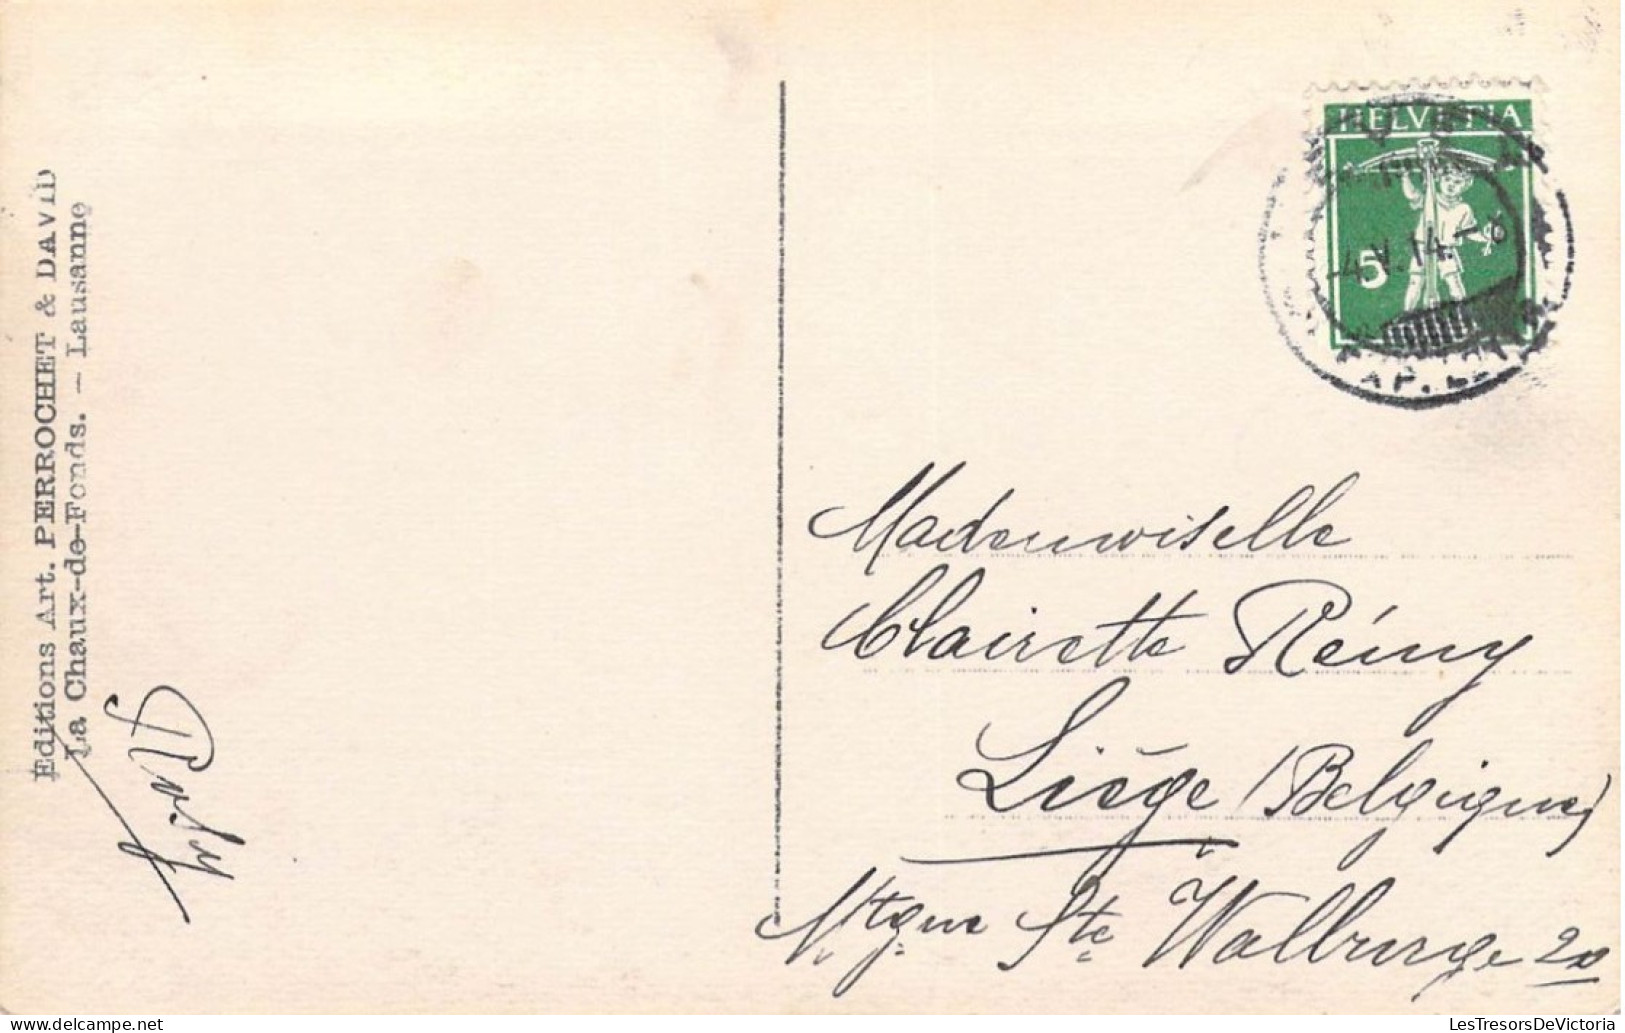 Editions Art. PERROCHET & DAVID
La Chaux-de-Fonds. — Lausanne
HELVETIA
5
-4.V.14.-8
EXP. LET
Mademoiselle
Clairette Rémy
Liége (Belgique)
Mtgne Ste Walburge
LesTresorsDeVictoria